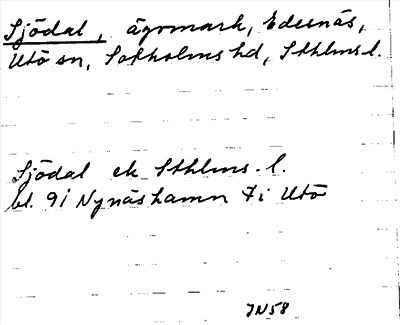 Sjödal, ägomark, Edesnäs,
Utö sn, Sotholms hd, Sthlms l.
Sjödal ek Sthlms. l.
bl. 9i Nynäshamn 7i Utö
JN58